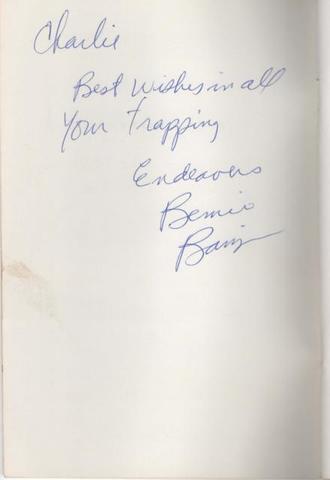 Charlie
Best wishes in all
Your Trapping
Endeavors
Bernie